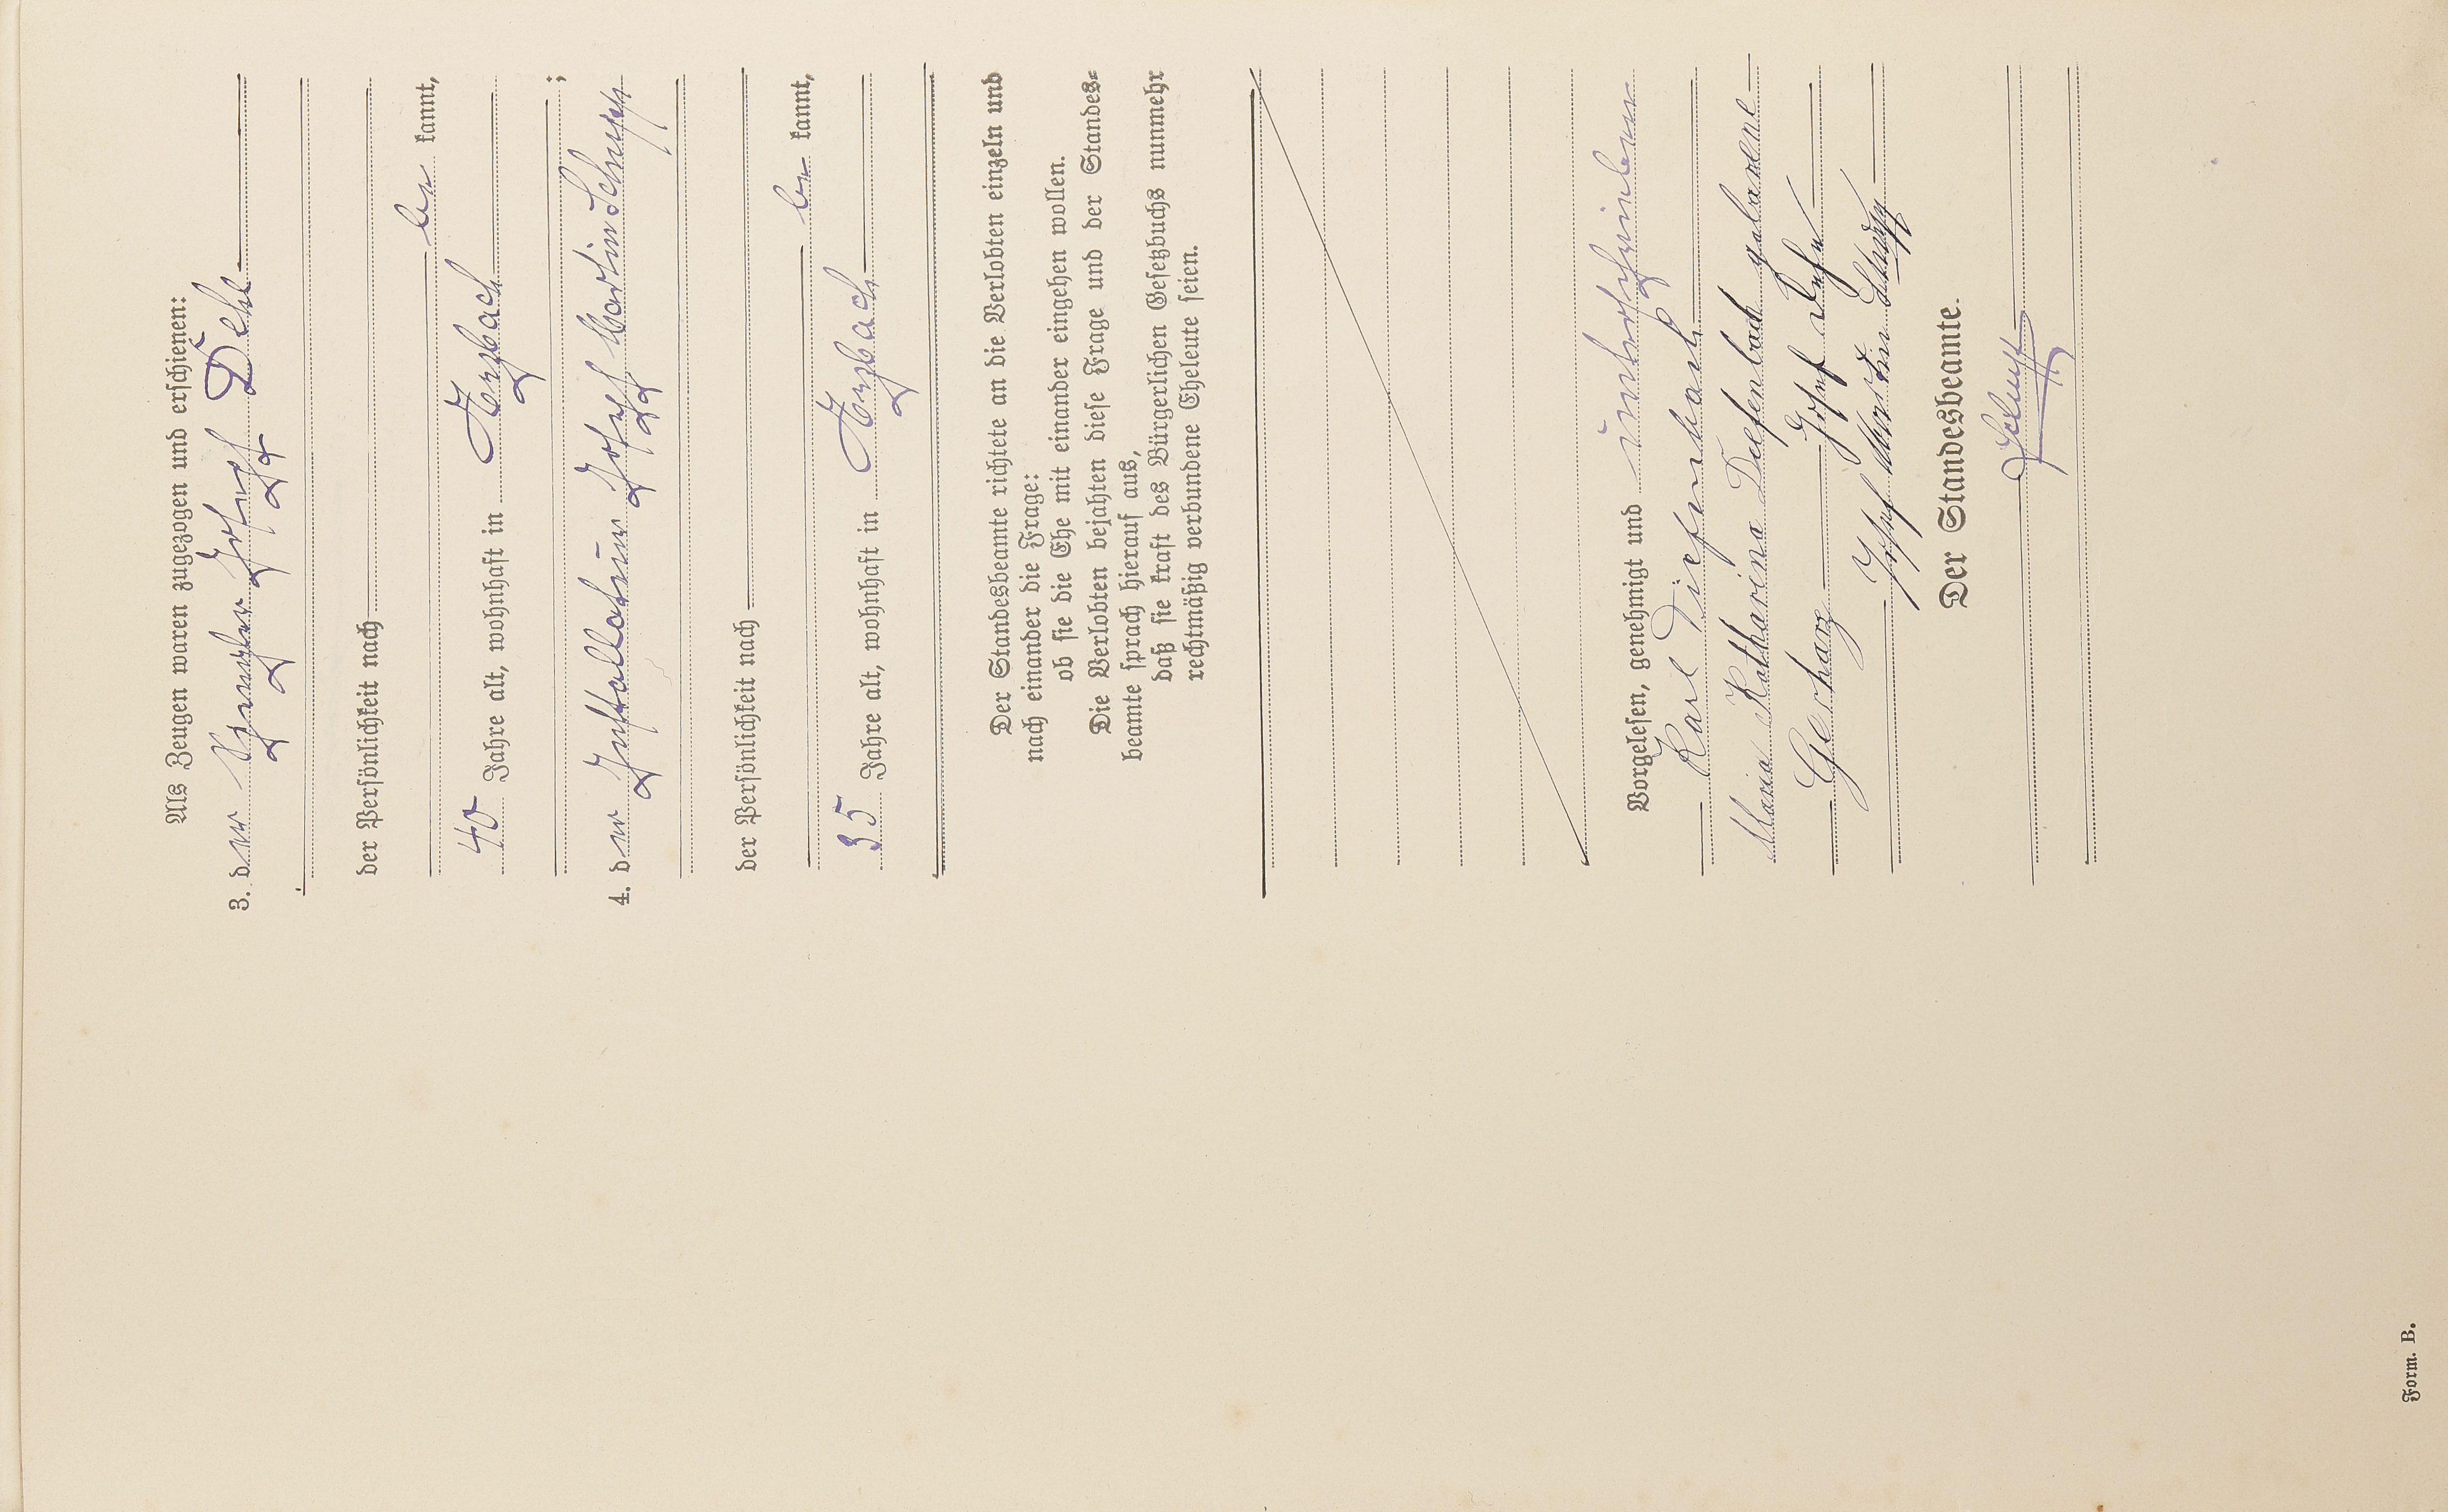 Als Zeugen waren zugezogen und erschienen:
3. der Joseph Dehe
der Persönlichkeit nach
be kannt,
40 Jahre alt, wohnhaft in Arzbach
;
4. der Installateur Joseph Martin Schupp
der Persönlichkeit nach
be kannt,
35 Jahre alt, wohnhaft in Arzbach
Der Standesbeamte richtete an die Verlobten einzeln und
nach einander die Frage:
ob sie die Ehe mit einander eingehen wollen.
Die Verlobten bejahten diese Frage und der Standes-
beamte sprach hierauf aus,
daß sie kraft des Bürgerlichen Gesetzbuchs nunmehr
rechtmäßig verbundene Eheleute seien.
Vorgelesen, genehmigt und unterschrieben
Karl Diefenbach
Maria Katharina Deefenbach geborene
Gerharz Josef Dehe
Josef Martin Schupp
Der Standesbeamte.
Schupp
Form. B.